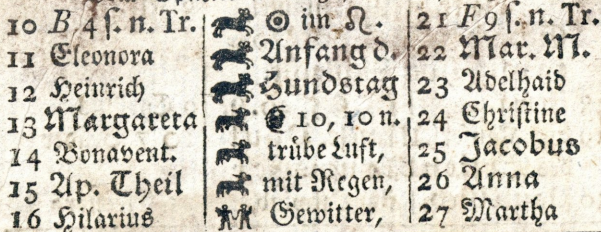 10 B 4 ſ. n. Tr. ☉ im ♌. 21 F 9 ſ. n. Tr.
11 Eleonora Anfang d. 22 Mar. M.
12 Heinrich Hundstag 23 Adelhaid
13 Margareta 10, 10 n. 24 Chriſtine
14 Bonavent. trübe Luft, 25 Jacobus
15 Ap. Theil mit Regen, 26 Anna
16 Hilarius Gewitter, 27 Martha